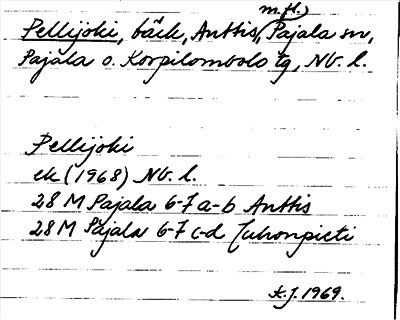 m.fl.)
Pellijoki, bäck, Anttis, Pajala sn,
Pajala o. Korpilombolo tg, Nb. l.
Pellijoki
ek (1968) Nb. l.
28 M Pajala 6-7 a-b Anttis
28 M Pajala 6-7 c-d Juhonpieti
K.J. 1969.